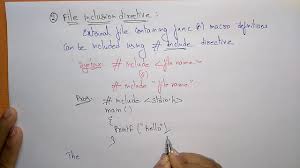 ② File inclusion directive :
External file containing func (or) macro definitions
can be included using # include directive
Syntax: # include <file name>
(or)
# include "file name"
Prog: # include <stdio.h>
main()
{
printf ("Hello");
}
The